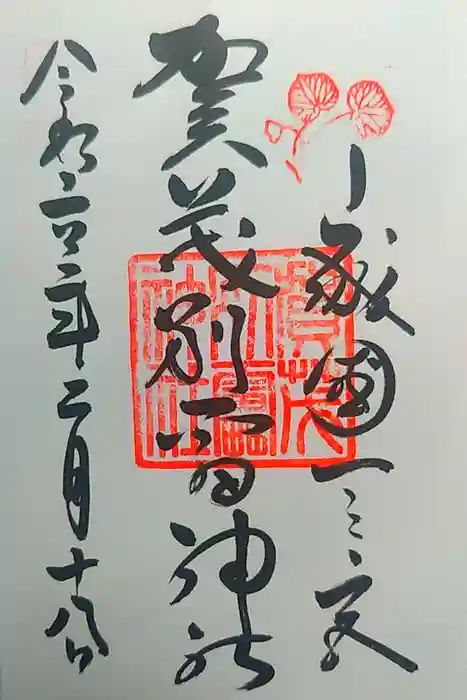 山城國一之宮
賀茂別雷神社
令和六年二月十八日
賀茂別雷神社